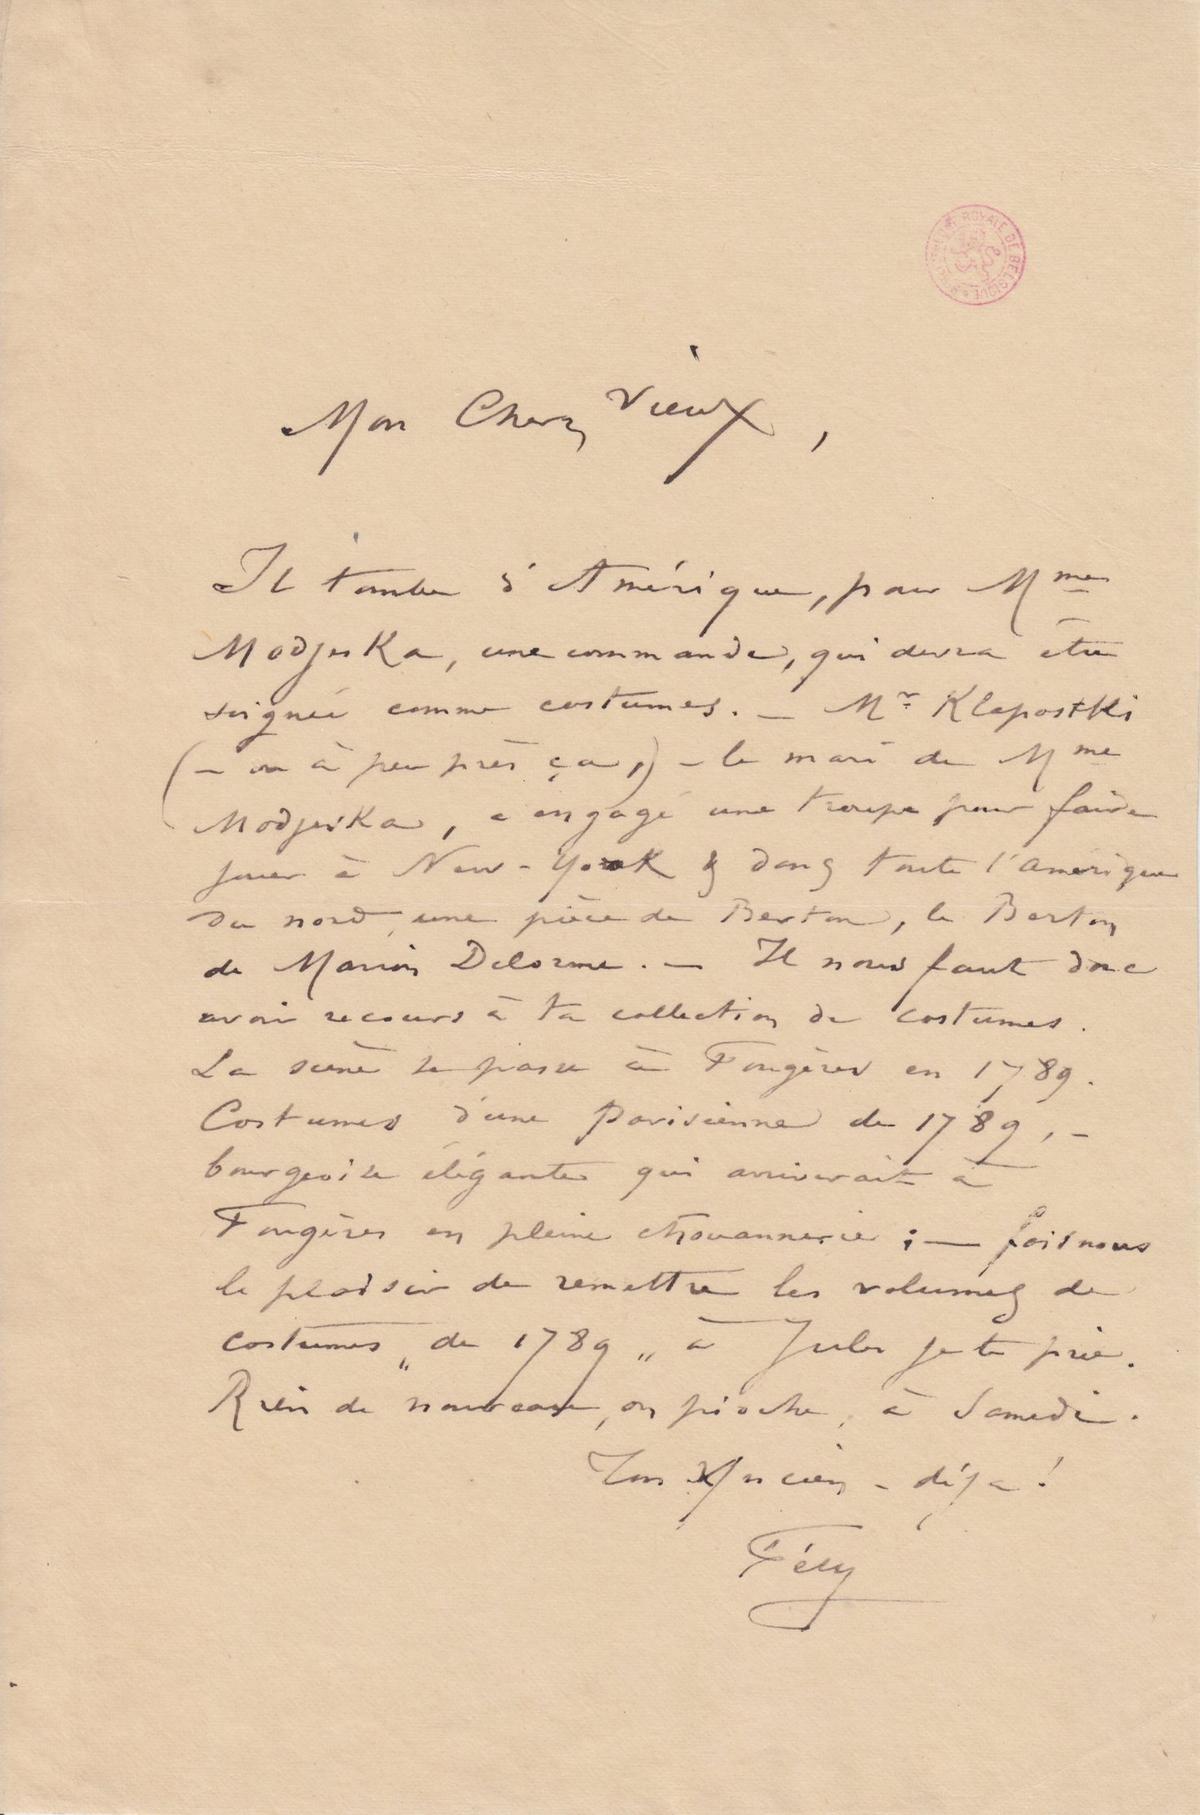 BIBLIOTHÈQUE ROYALE DE BELGIQUE
Mon Cher Vieux,
Il tombe d'Amérique, pour Mme
Modjeska, une commande, qui devra être
soignée comme costumes. — Mr Klapostki
(— ou à peu près ça,) — le mari de Mme
Modjeska, a engagé une troupe pour faire
jouer à New-York & dans toute l'Amérique
du nord, une pièce de Berton, le Berton
de Marion Delorme. — Il nous faut donc
avoir recours à ta collection de costumes.
La scène se passe à Fougères en 1789.
Costumes d'une Parisienne de 1789, —
bourgeoise élégante qui arriverait à
Fougères en pleine chouannerie ; — fais nous
le plaisir de remettre les volumes de
costumes „ de 1789 „ à Jules je te prie.
Rien de nouveau, on pioche, à Samedi.
Ton Ancien — déja !
Fély